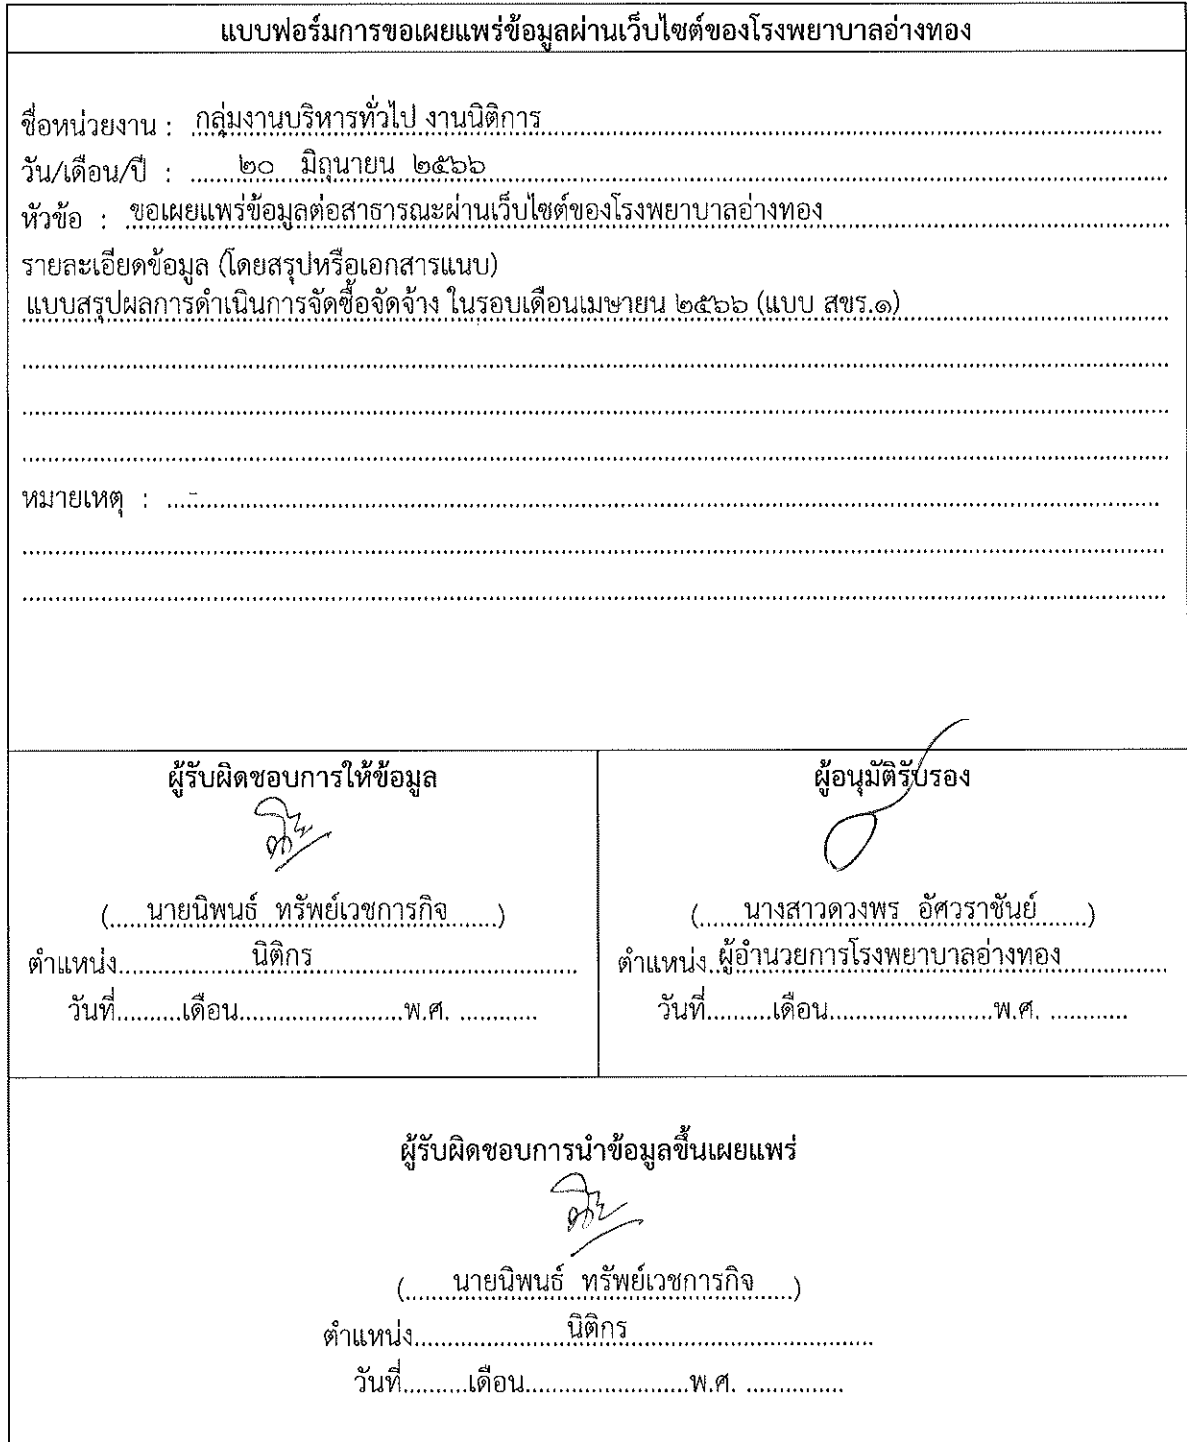 แบบฟอร์มการขอเผยแพร่ข้อมูลผ่านเว็บไซต์ของโรงพยาบาลอ่างทอง
ชื่อหน่วยงาน : กลุ่มงานบริหารทั่วไป งานนิติการ
วัน/เดือน/ปี : ๒๐ มิถุนายน ๒๕๖๖
หัวข้อ : ขอเผยแพร่ข้อมูลต่อสาธารณะผ่านเว็บไซต์ของโรงพยาบาลอ่างทอง
รายละเอียดข้อมูล (โดยสรุปหรือเอกสารแนบ)
แบบสรุปผลการดำเนินการจัดซื้อจัดจ้าง ในรอบเดือนเมษายน ๒๕๖๖ (แบบ สขร.๑)
หมายเหตุ : -
ผู้รับผิดชอบการให้ข้อมูล
(.....นายนิพนธ์ ทรัพย์เวชการกิจ......)
ตำแหน่ง..................นิติกร....................................
วันที่..........เดือน.........................พ.ศ. ............
ผู้อนุมัติรับรอง
(......นางสาวดวงพร อัศวราชันย์......)
ตำแหน่ง..ผู้อำนวยการโรงพยาบาลอ่างทอง................
วันที่..........เดือน.........................พ.ศ. ............
ผู้รับผิดชอบการนำข้อมูลขึ้นเผยแพร่
(......นายนิพนธ์ ทรัพย์เวชการกิจ......)
ตำแหน่ง......................นิติกร.....................................
วันที่..........เดือน.........................พ.ศ. ...............